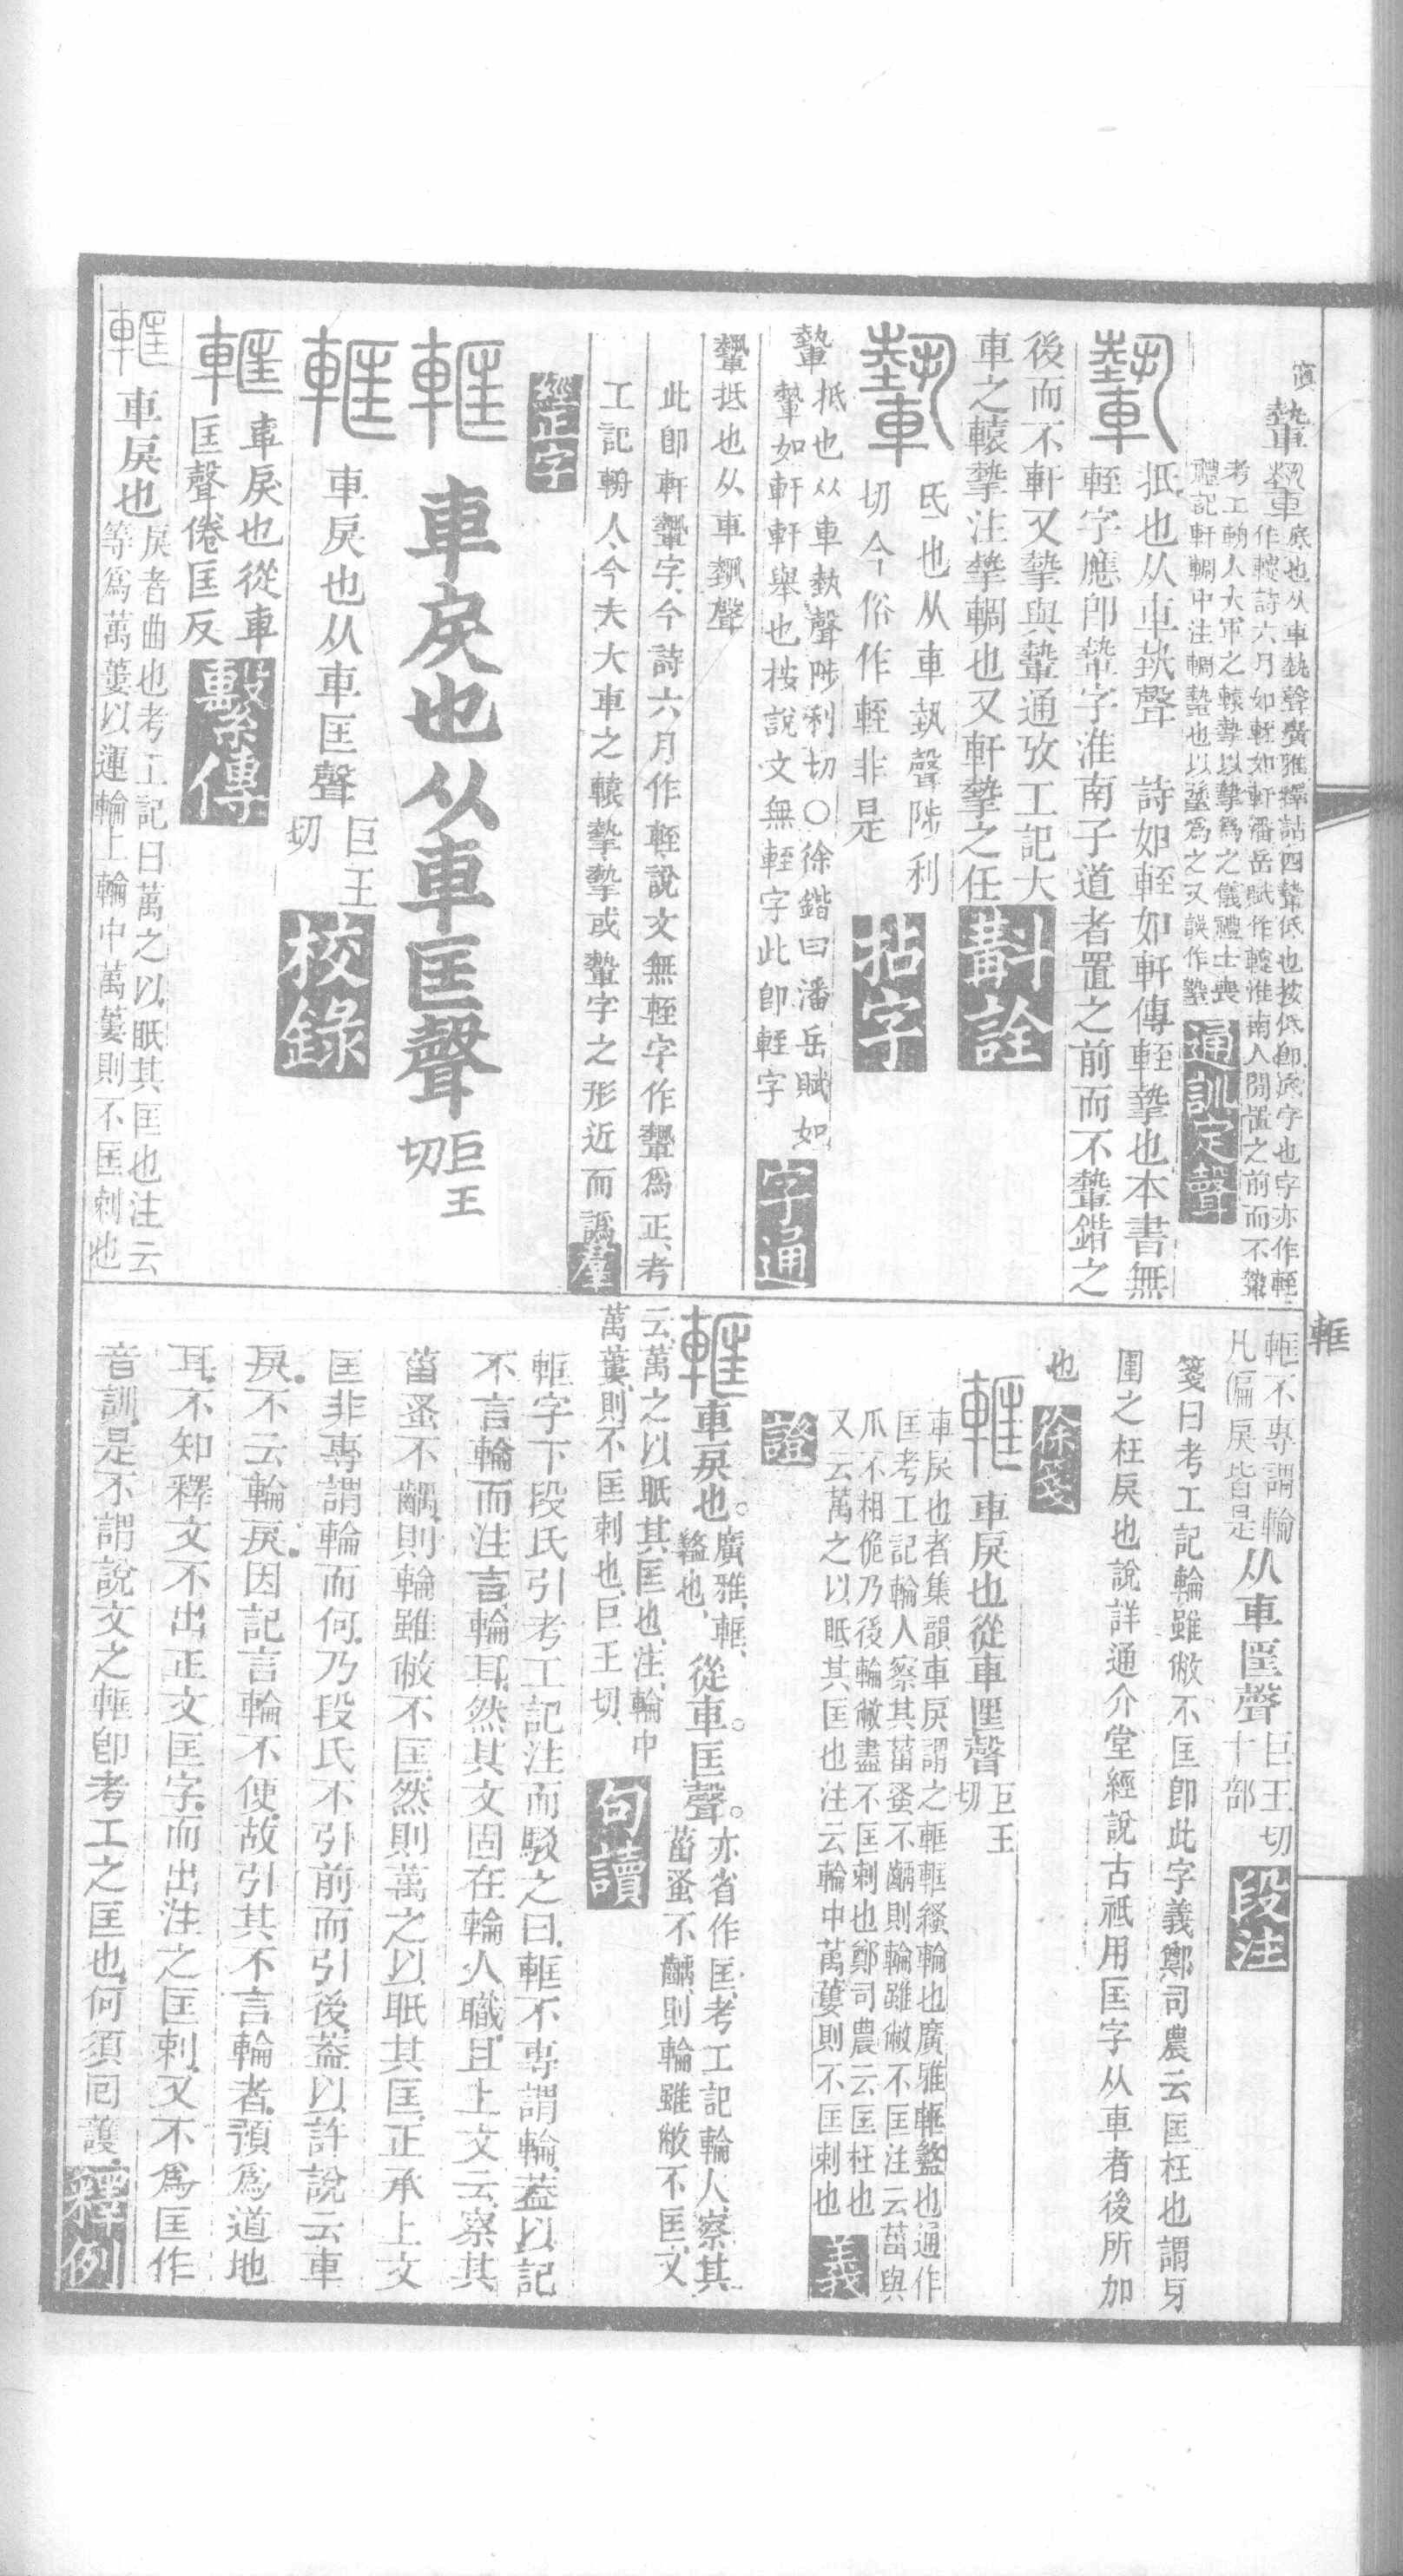 底也从車執聲廣雅釋詁四蟄低也按低即底字也字亦作輊
作轾詩六月如輊如軒潘岳賦作轾淮南人閒置之前而不
考工輈人大軍之轅摯以摯爲之儀禮士喪
禮記軒輖中注輖蟄也以蟄爲之又誤作墊
通訓定聲
抵也从車執聲 詩如輊如軒傳輊摯也本書無
輊字應卽𨎌字淮南子道者置之前而不𨎌錯之
後而不軒又摯與𨎌通攷工記大
車之轅摯注摯輖也又軒摯之任
斠詮
氐也从車執聲陟利
切今俗作輊非是
拈字
𨎌 抵也从車執聲陟利切〇徐鍇曰潘岳賦如
𨎌如軒軒舉也按說文無輊字此卽輊字
字通
抵也从車執聲
此卽軒𨎌字今詩六月作輊說文無輊字作𨎌爲正考
工記輈人今夫大車之轅摯摯或𨎌字之形近而譌
羣經正字
車戾也从車匡聲 巨王切
車戾也从車匡聲 巨王切
校錄
車戾也從車
匡聲倦匡反
繫傳
車戾也 戾者曲也考工記曰萬之以眡其匡也注云
等爲萬蔞以運輪上輪中萬蔞則不匡剌也
軭
軭不專謂輪
凡偏戾皆是
从車匡聲 巨王切
十部
段注
箋曰考工記輪雖敝不匡卽此字義鄭司農云匡枉也謂牙
圍之枉戾也說詳通介堂經說古祇用匡字从車者後所加
也
徐箋
車戾也從車匡聲 巨王切
車戾也者集韻車戾謂之軭軭繅輪也廣雅軭盭也通作
匡考工記輪人察其菑蚤不齵則輪雖敝不匡注云菑與
爪不相佹乃後輪敝盡不匡剌也鄭司農云匡枉也
又云萬之以眡其匡也注云輪中萬蔞則不匡剌也
義證
車戾也。廣雅、軭、盭也、從車。匡聲。亦省作匡、考工記輪人、察其
菑蚤不齵、則輪雖敝不匡、又
云、萬之以眡其匡也、注、輪中
萬蔞、則不匡剌也、巨王切、
句讀
軭字下段氏引考工記注而駁之曰、軭不專謂輪、蓋以記
不言輪而注言輪耳、然其文固在輪人職、且上文云、察其
菑蚤不齵、則輪雖敝不匡、然則萬之以眡其匡、正承上文
匡非專謂輪而何、乃段氏不引前而引後、蓋以許說云車
戾、不云輪戾、因記言輪不便、故引其不言輪者、預爲道地
耳、不知釋文不出正文匡字、而出注之匡剌、又不爲匡作
音訓、是不謂說文之軭卽考工之匡也、何須回護、
釋例